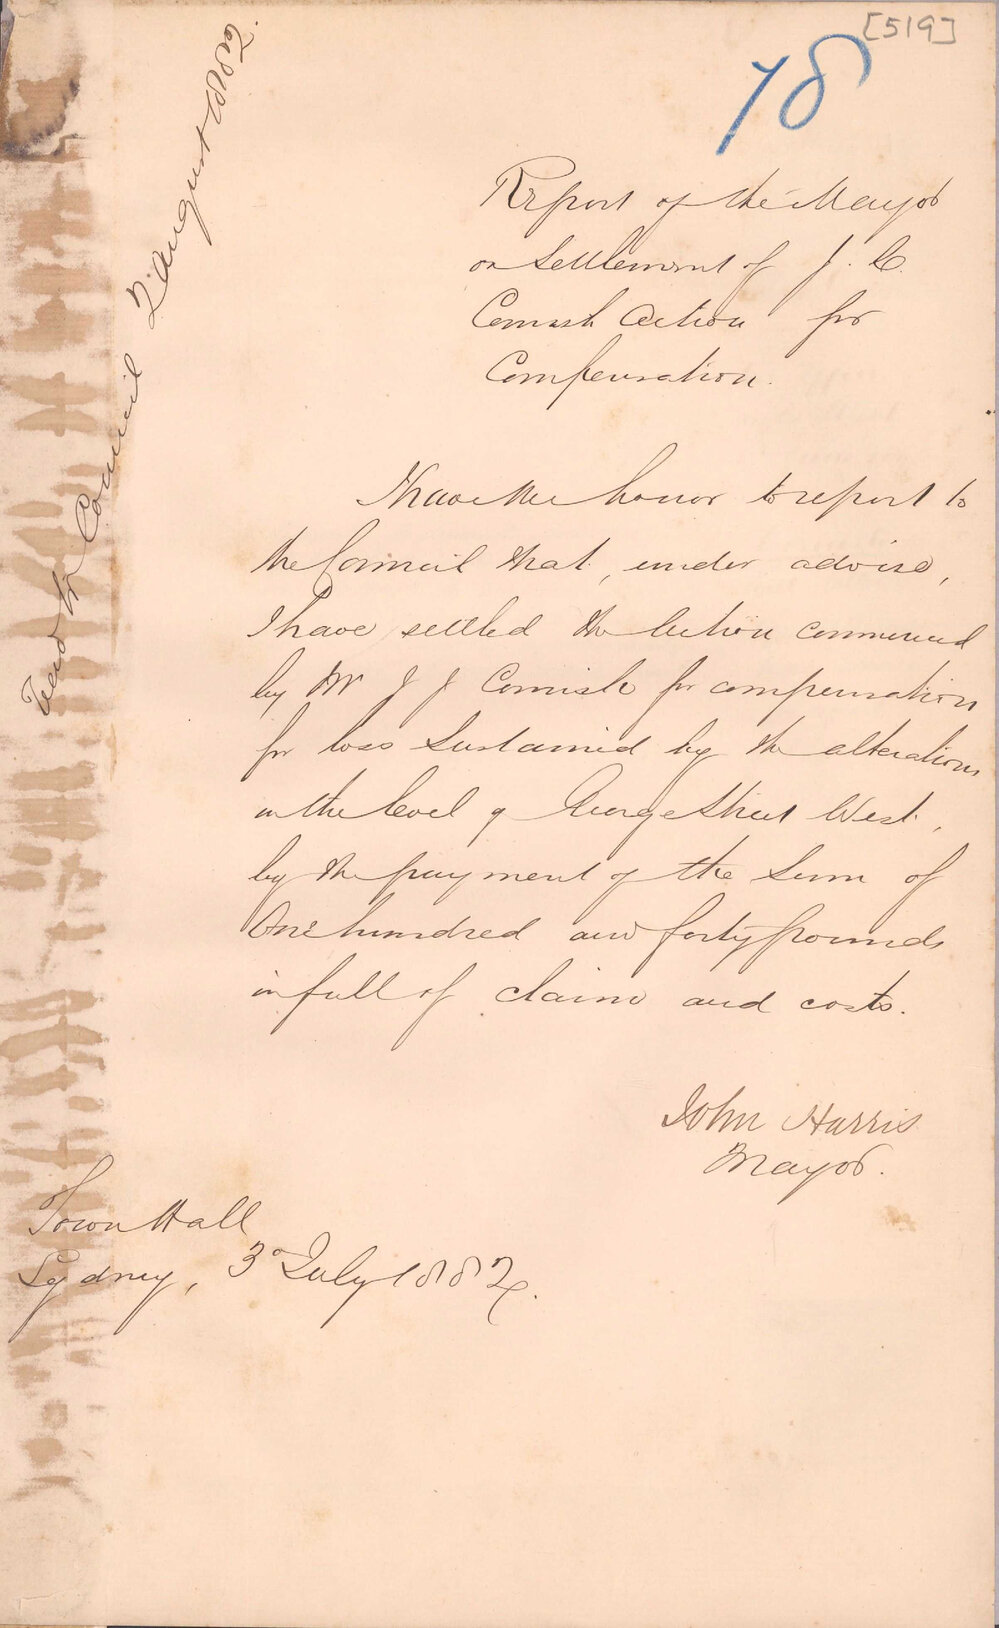 [519]
78
Report of the Mayor
on Settlement of J. C.
Cornish Action for
Compensation.
I have the honor to report to
the Council that, under advise,
I have settled the Action commenced
by Mr J J Cornish for compensation
for loss sustained by the alterations
in the level of George Street West,
by the payment of the sum of
One hundred and forty pounds
in full of claim and costs.
John Harris
Mayor.
Town Hall
Sydney, 3 July 1882.
Read in Council 2 August 1882.